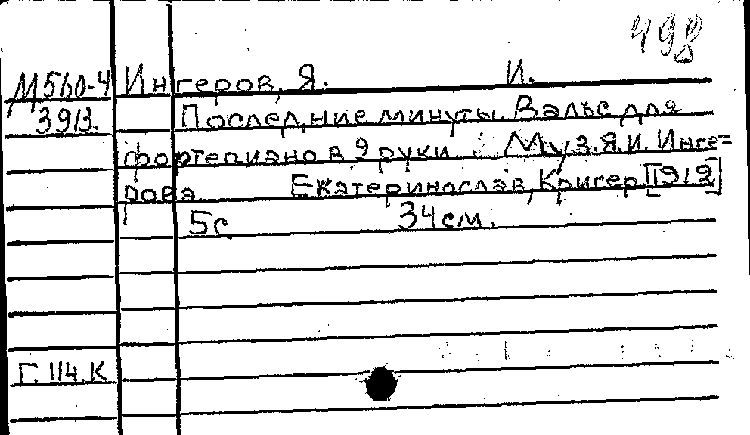 498
М560-4 Ингеров, Я. И.
393. Последние минуты. Вальс для
фортепиано в 2 руки. Муз. Я.И. Инге=
рова Екатеринослав, Кригер [1912]
5с 34см.
Г. 114. К